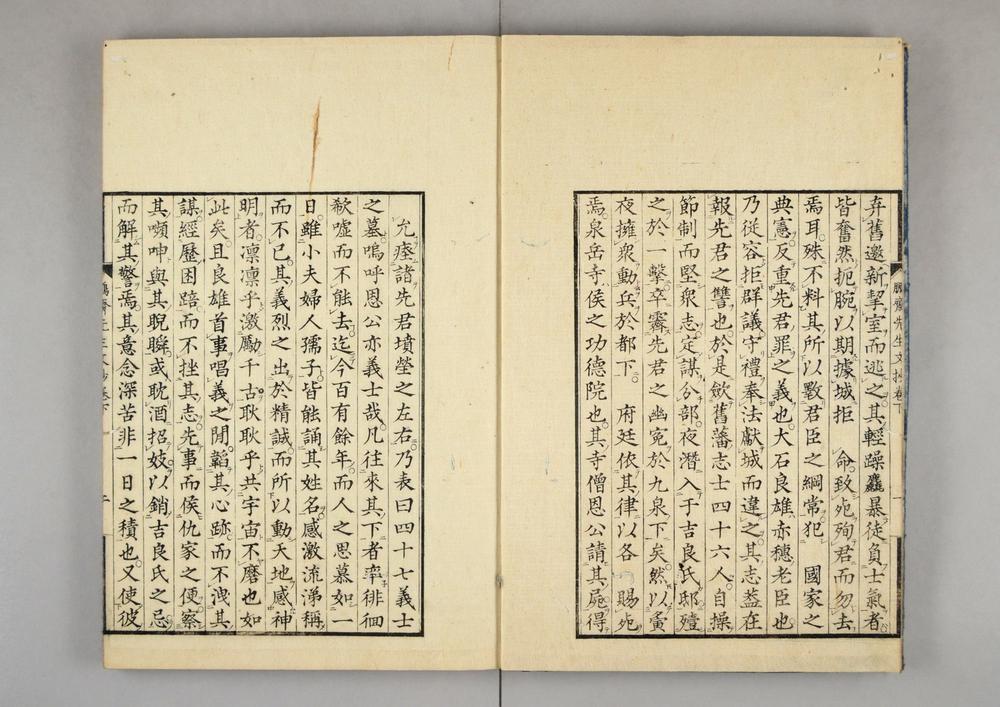 弃舊邀新挈室而逃之其輕躁麤暴徒負士氣者
皆奮然扼腕以期據城拒　命致死殉君而勿去
焉耳殊不料其所以斁君臣之綱常犯　國家之
典憲反重先君罪之義也大石良雄赤穗老臣也
乃從容拒群議守禮奉法獻城而違之其志蓋在
報先君之讐也於是歛舊藩志士四十六人自操
節制而堅衆志定謀分部夜潛入于吉良氏邸殪
之於一擊卒霽先君之幽寃於九泉下矣然以寅
夜擁衆動兵於都下　府廷依其律以各　賜死
焉泉岳寺侯之功德院也其寺僧恩公請其屍得
鵬齋先生文抄卷下
允瘞諸先君墳塋之左右乃表曰四十七義士
之墓嗚呼恩公亦義士哉凡往來其下者率徘徊
欷嘘而不能去迄今百有餘年而人之思慕如一
日雖小夫婦人孺子皆能誦其姓名感激流涕稱
而不已其義烈之出於精誠而所以動天地感神
明者凛凛乎激勵千古耿耿乎共宇宙不磨也如
此矣且良雄首事唱義之間韜其心跡而不洩其
謀經歷困踣而不挫其志先事而侯仇家之便察
其嚬呻與其睨瞬或耽酒招妓以銷吉良氏之忌
而解其警焉其意念深苦非一日之積也又使彼